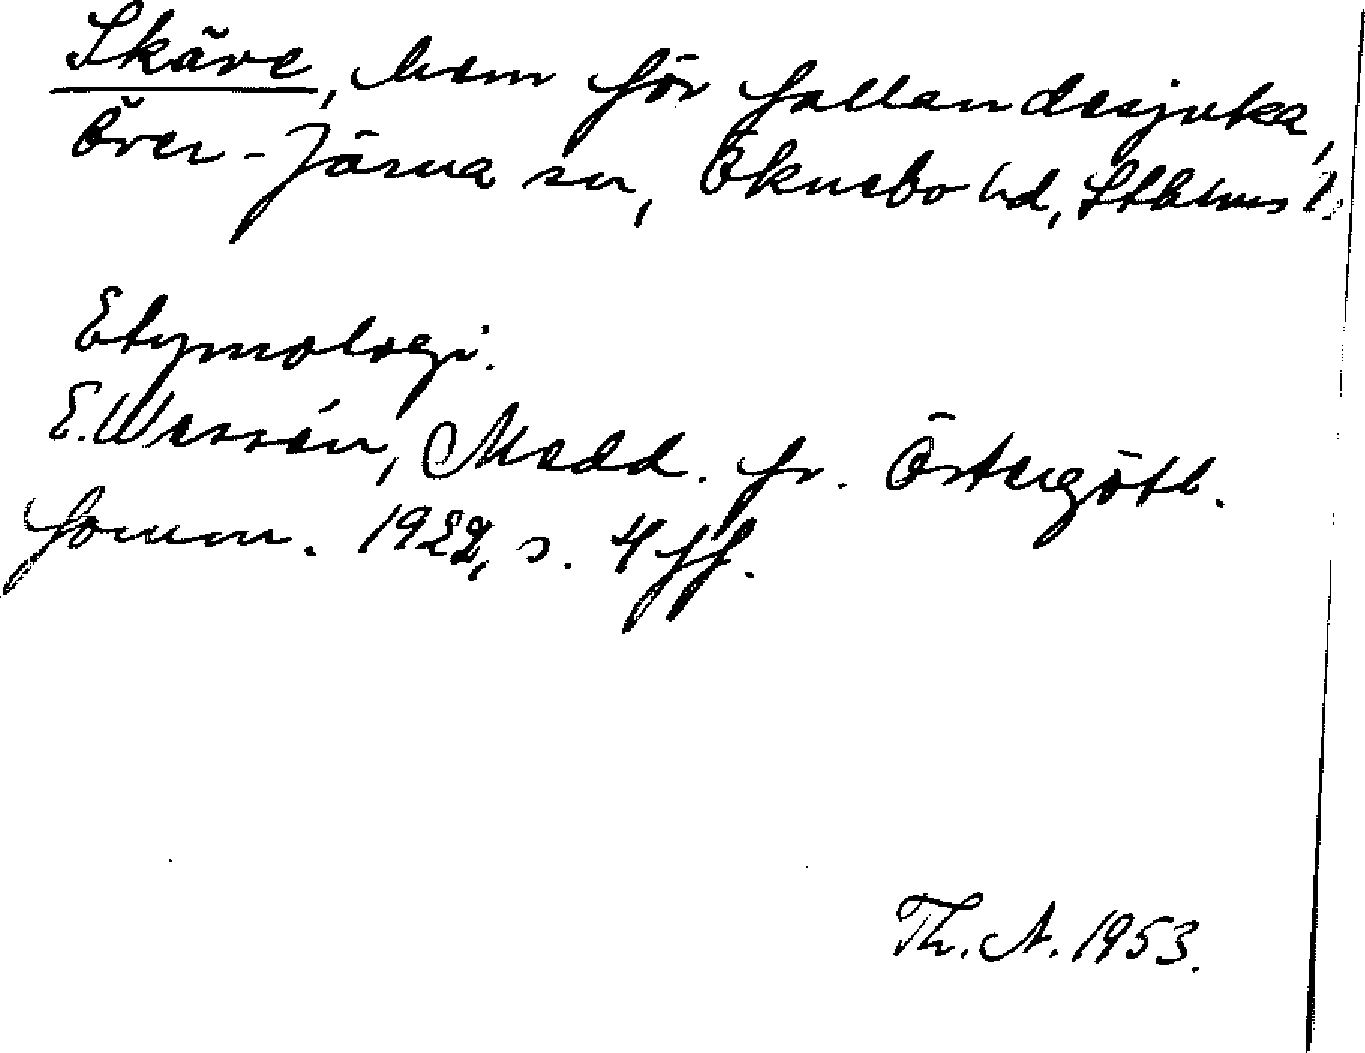 Skäve, hem för fallandesjuka,
Över-Järna sn, Öknebo hd, Sthlms l.
Etymologi.
E. Wessén, Medd. fr. Östergötl.
fornm. 1922, s. 4 ff.
Th. A. 1953.